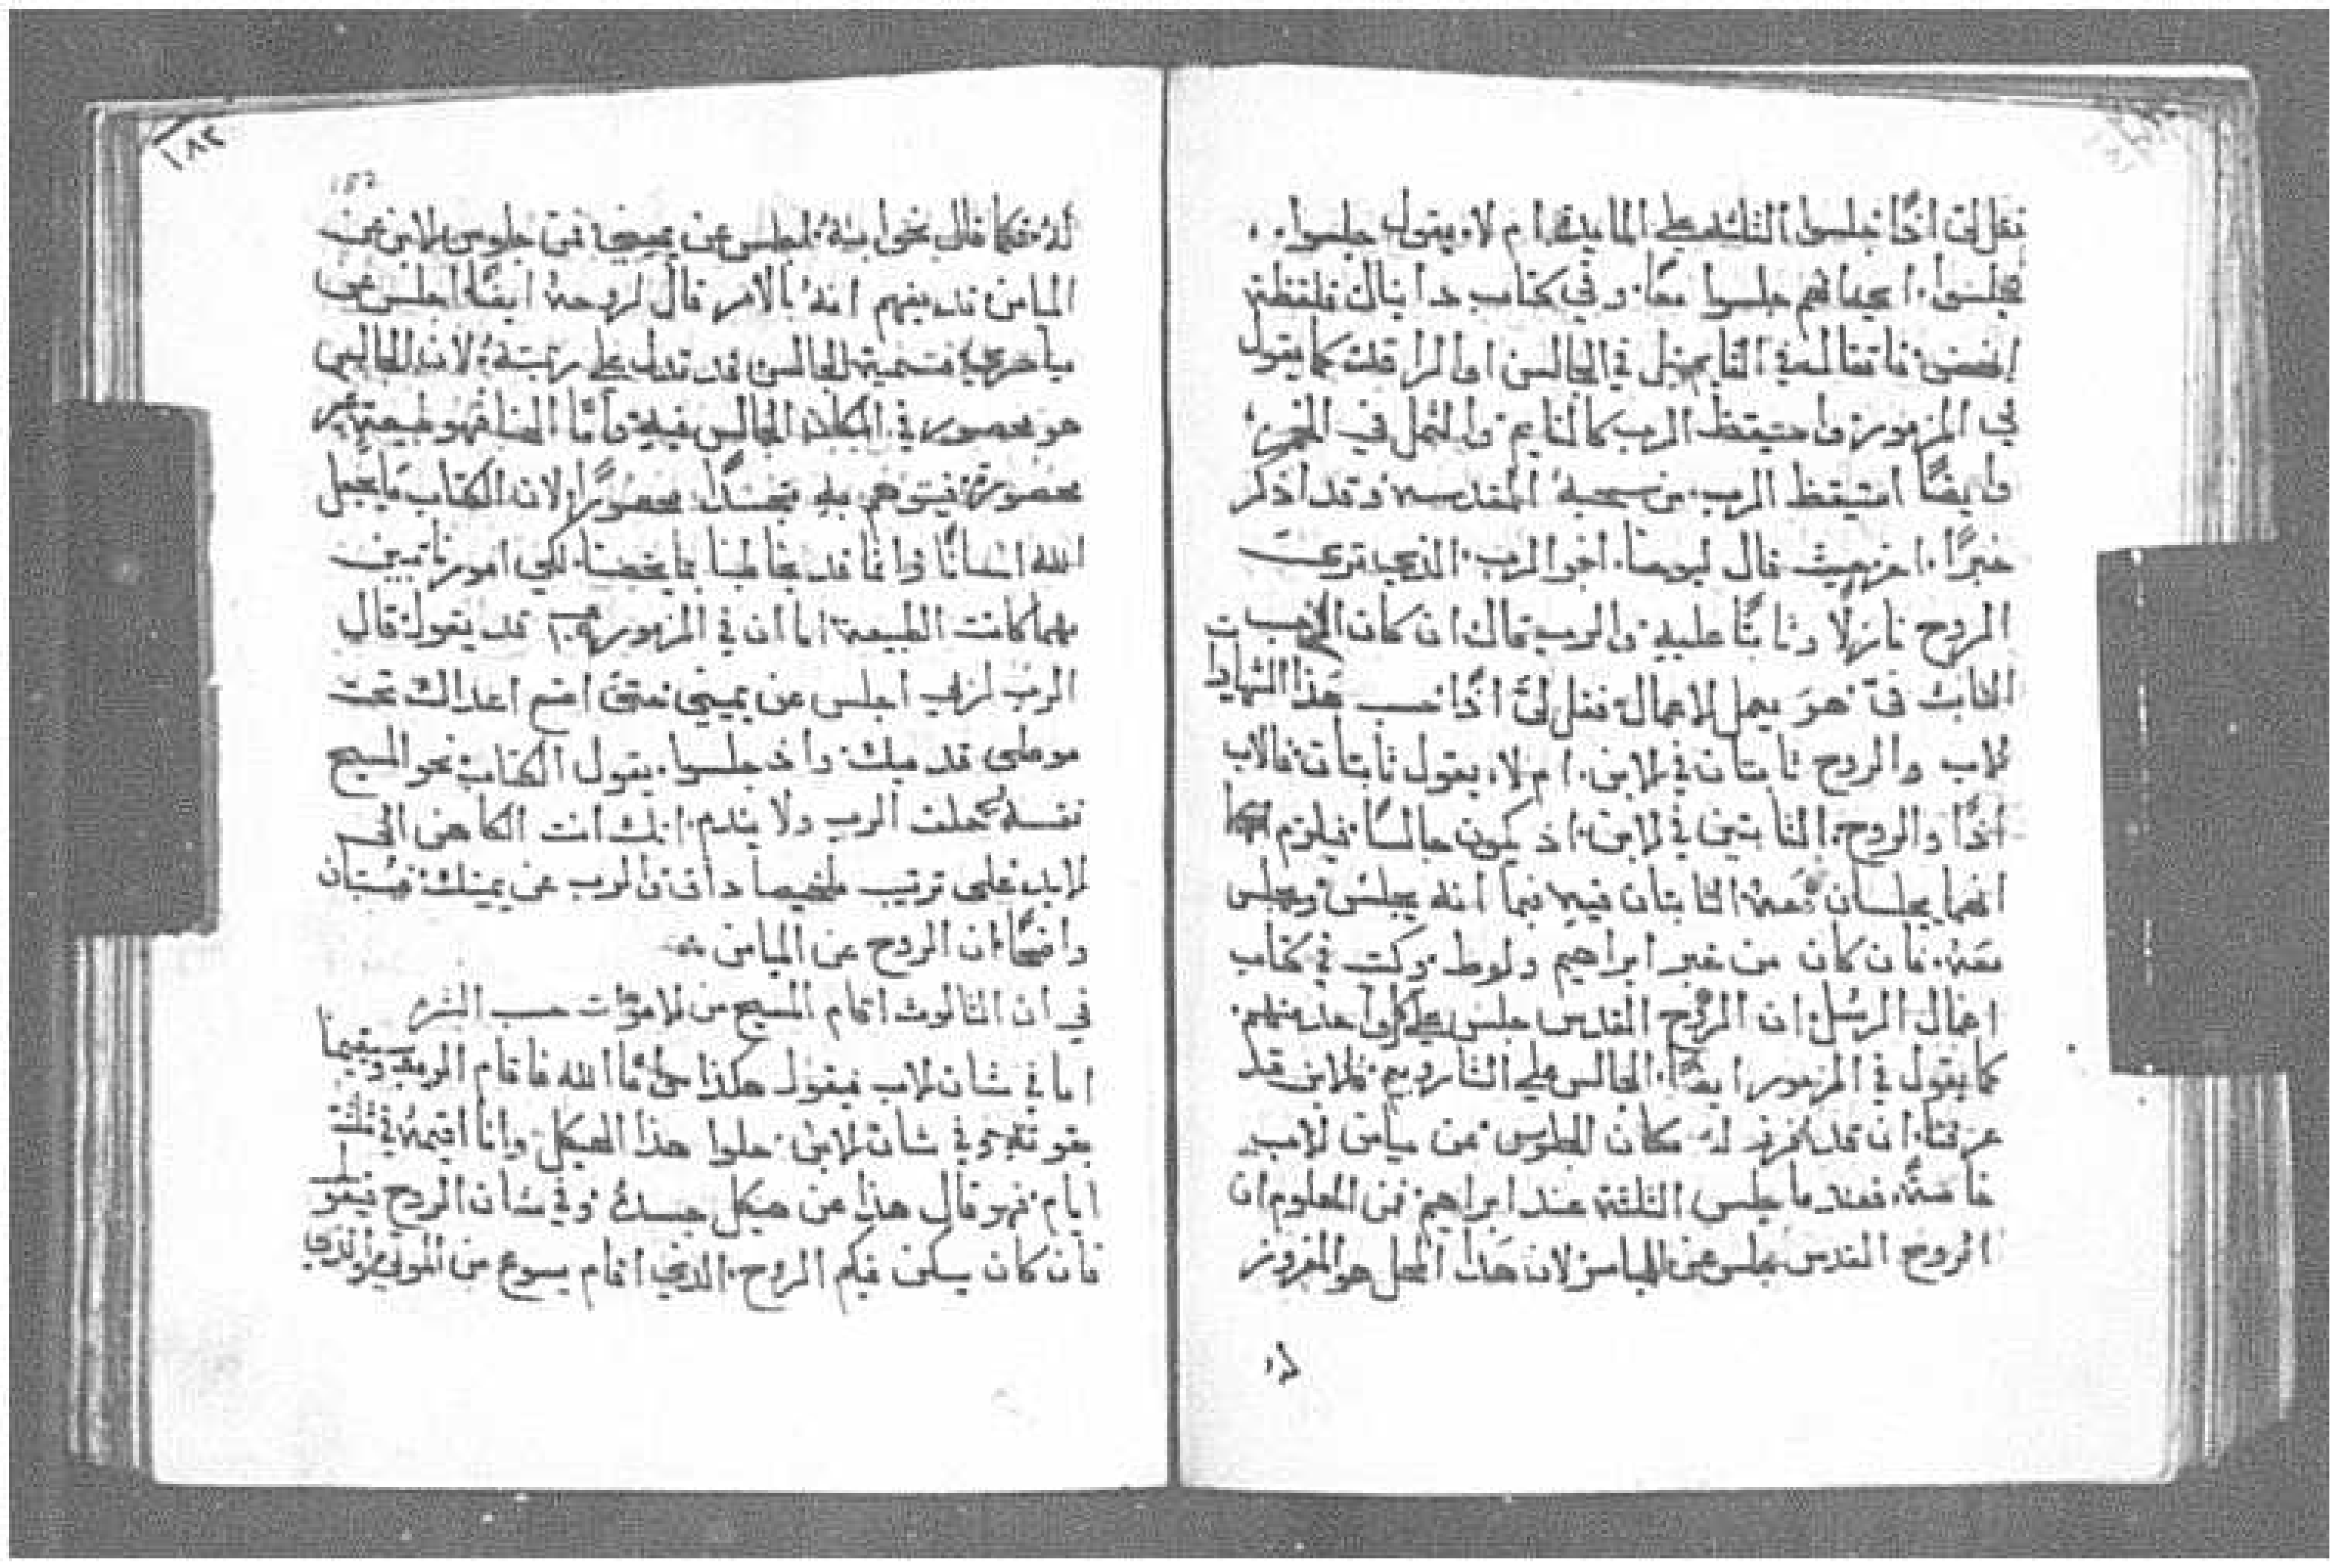 فقل لي اذًا جلسوا الثلثه على المايده ام لا. يقول جلسوا.
فجلسوا. اعني انهم جلسوا معًا. وفي كتاب دانيال فلفظة
انهض في القايم في الجالس او الراقد كما يقول
في المزمور واستيقظ الرب كالنايم والثمل في الخمر
وايضًا استيقظ الرب من المقدسه وقد اذكر
خبرًا. اخر حيث قال ليوحنا. اخو الرب. الذي ترى
الروح نازلًا وثابتًا عليه. والرب قال ان كان الاب
الثابت فيّ هو يعمل الاعمال. فقل لي اذًا حسب هذا الشهادات
الاب والروح ثابتان في الابن. ام لا. يقول ثابتان. فالاب
اذًا والروح. الثابتين في الابن. اذ يكون جالسًا. فيلزم
انهما يجلسان معه الثابتان فيه فبما انه يجلس ويجلس
معه. فان كان من خبر ابراهيم ولوط وكتب في كتاب
اعمال الرسل ان الروح القدس جلس على كل واحد منهم.
كما يقول في المزمور ايضًا. الجالس على الشاروبيم. فالابن قد
عرفنا. ان قد افرز له مكان الجلوس عن ميامن الاب
خاصةً. فعند ما جلس الثلثة عند ابراهيم. فمن المعلوم ان
الروح القدس يجلس عن الميامن لان هذا المحل هو المفروز
له
١٨٢
له. فكما قال نحو ابنه. اجلس عن يميني. فمن جلوس الابن عن
الميامن قد يفهم انه بالامر قال لروحه ايضًا اجلس عن
فتسمية الجالس قد تدل على رتبته. لان الجالس
هو محصور في المكان الجالس فيه. واما الله فهو طبيعة غير
محصورة. فيتوهم به متجسدًا محصورًا لان الكتاب ما يجعل
الله انسانًا وانما قد يخاطبنا بما يخصنا. لكي امورنا تبين
مهما كانت الطبيعة اما ان في المزمور قد يقول. قال
الرب لربي اجلس عن يميني حتى اضع اعداك تحت
موطي قدميك. واذ جلسوا. يقول الكتاب نحو المسيح
نفسه حلف الرب ولا يندم. انك انت الكاهن الى
الابد على ترتيب ملخيصاداق والرب عن يمينك. فيستبان
واضحًا ان الروح عن الميامن
في ان الثالوث اقام المسيح من الاموات حسب البشره
اما في شان الاب فيقول هكذا اما الله فاقام الرب وسيقيمنا
بقوته. وفي شان الابن. حلوا هذا الهيكل وانا اقيمه في ثلثة
ايام. فهو قال هذا عن هيكل جسده. وفي شان الروح فيقول
فان كان يسكن فيكم الروح. الذي اقام يسوع من الموتى. والذي